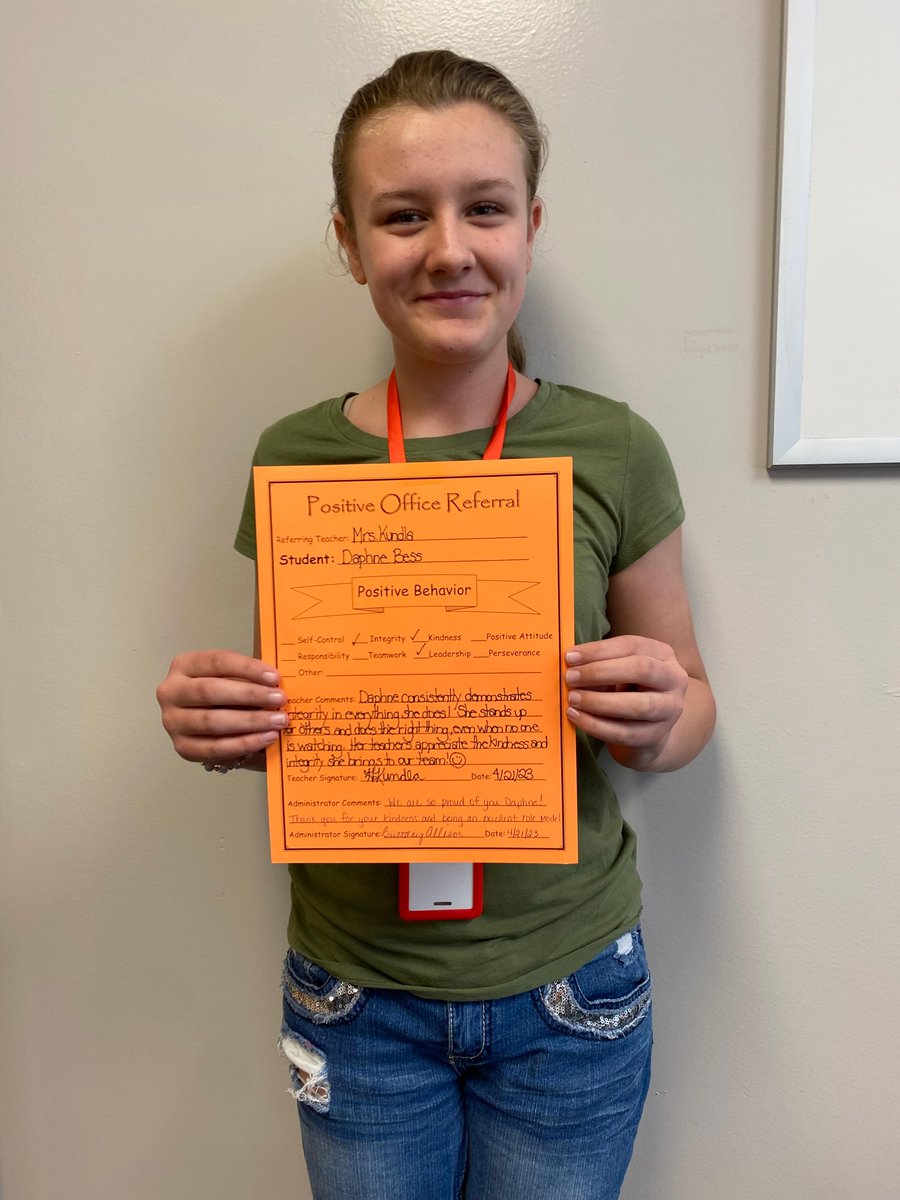 Positive Office Referral
Referring Teacher: Mrs. Kundla
Student: Daphne Bess
Positive Behavior
__ Self-Control ✓ Integrity ✓ Kindness __ Positive Attitude
__ Responsibility __ Teamwork ✓ Leadership __ Perseverance
__ Other:
Teacher Comments: Daphne consistently demonstrates
integrity in everything she does! She stands up
for others and does the right thing, even when no one
is watching. Her teachers appreciate the kindness and
integrity she brings to our team! ☺
Teacher Signature: Kundla Date: 4/21/23
Administrator Comments: We are so proud of you Daphne!
Thank you for your kindness and being an excellent role model
Administrator Signature: Brittany Allison Date: 4/21/23